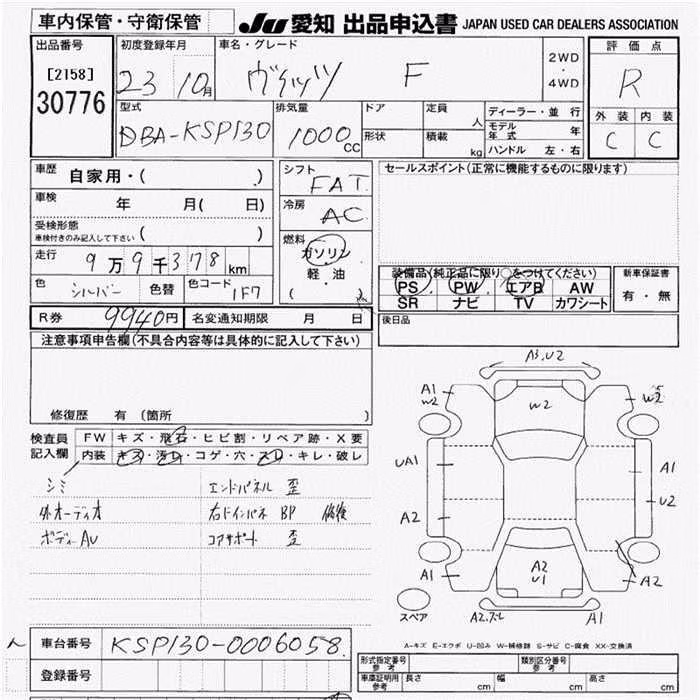 車内保管・守衛保管
JU 愛知 出品申込書 JAPAN USED CAR DEALERS ASSOCIATION
出品番号
[2158]
30776
初度登録年月
23 10月
車名・グレード
ヴィッツ F
2WD
・
4WD
評価点
R
外装 内装
C C
型式
DBA-KSP130
排気量
1000cc
ドア
形状
定員
人
積載
kg
ディーラー・並行
モデル年式 年
ハンドル 左・右
車歴 自家用・( )
車検 年 月( 日)
受検形態
車検付きのみ記入して下さい ( )
走行 9万9千378km
色 シルバー 色替 色コード 1F7
シフト
FAT
冷房
AC
燃料
ガソリン
軽・油
( )
セールスポイント(正常に機能するものに限ります)
装備品(純正品に限り○をつけてください)
PS PW エアB AW
SR ナビ TV カワシート
新車保証書
有・無
後日品
R券 9940円 名変通知期限 月 日
注意事項申告欄(不具合内容等は具体的に記入して下さい)
修復歴 有(箇所 )
検査員
記入欄
FW キズ・飛石・ヒビ割・リペア跡・X要
内装 キズ・汚レ・コゲ・穴・スレ・キレ・破レ
シミ エンドパネル 歪
外オーディオ 右ドインパネ BP 修後
ボディAU コアサポート 歪
A3.U2
A1
W2
W2
W2
UA1
A1
U2
A2
A2
U1
A1
A2
A2.スレ
A1
スペア
A-キズ E-エクボ U-凹み W-補修跡 S-サビ C-腐食 XX-交換済
車台番号 KSP130-0006058
登録番号
形式指定番号
参考
類別区分番号
参考
車庫証明用
参考
長さ cm 幅 cm 高さ cm